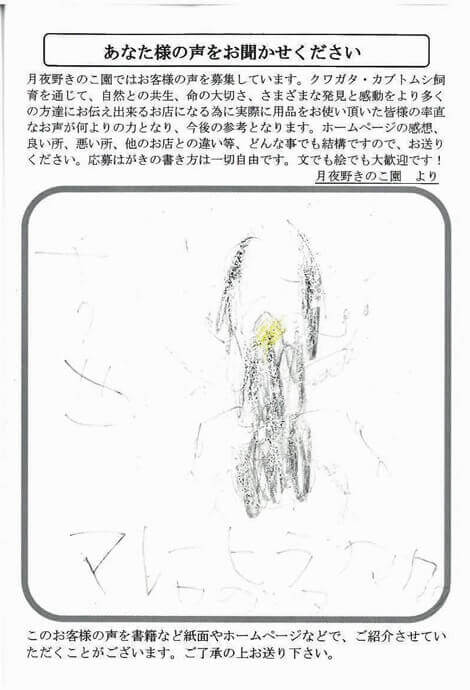 あなた様の声をお聞かせください
月夜野きのこ園ではお客様の声を募集しています。クワガタ・カブトムシ飼
育を通じて、自然との共生、命の大切さ、さまざまな発見と感動をより多く
の方達にお伝え出来るお店になる為に実際に用品をお使い頂いた皆様の率直
なお声が何よりの力となり、今後の参考となります。ホームページの感想、
良い所、悪い所、他のお店との違い等、どんな事でも結構ですので、お送り
ください。応募はがきの書き方は一切自由です。文でも絵でも大歓迎です！
月夜野きのこ園　より
マレーヒラ
このお客様の声を書籍など紙面やホームページなどで、ご紹介させてい
ただくことがございます。ご了承の上お送り下さい。